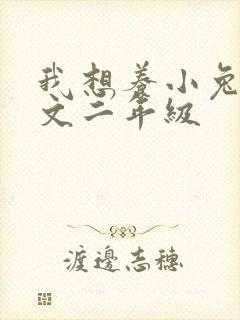 我想养小兔
文二年级
渡邊志穗